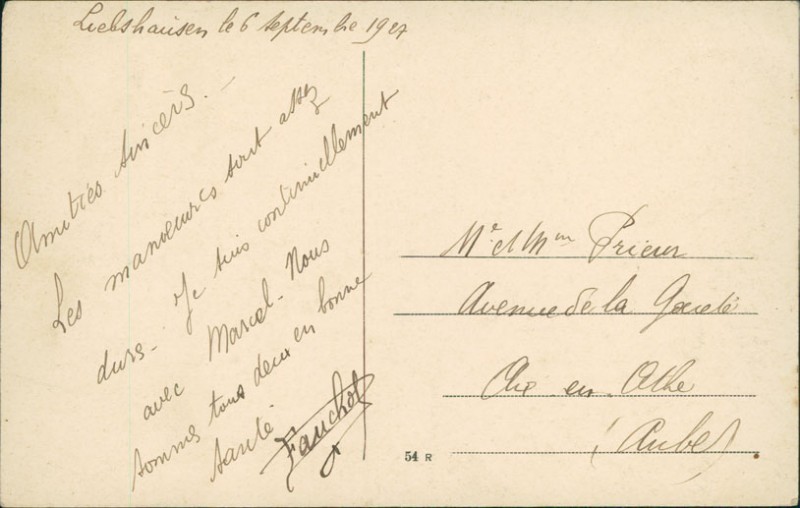 Liebshausen le 6 septembre 1927
Amitiés sincères. -
Les manoeuvres sont assez
dures - Je suis continuellement
avec Marcel - Nous
sommes tous deux en bonne
santé
Fauchot
Mr et Mme Prieur
Avenue de la Gare
Aix en Othe
(Aube)
54 R